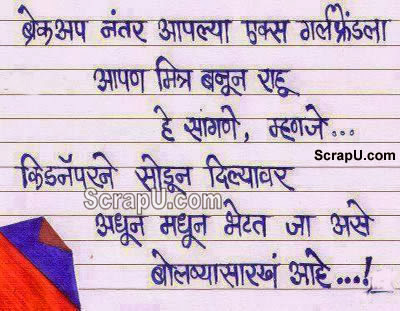 ब्रेकअप नंतर आपल्या एक्स गर्लफ्रेंडला
आपण मित्र बनून राहू
हे सांगणे, म्हणजे...
ScrapU.com
किडनॅपरने सोडून दिल्यावर
ScrapU.com
अधून मधून भेटत जा असे
बोलण्यासारखं आहे...!